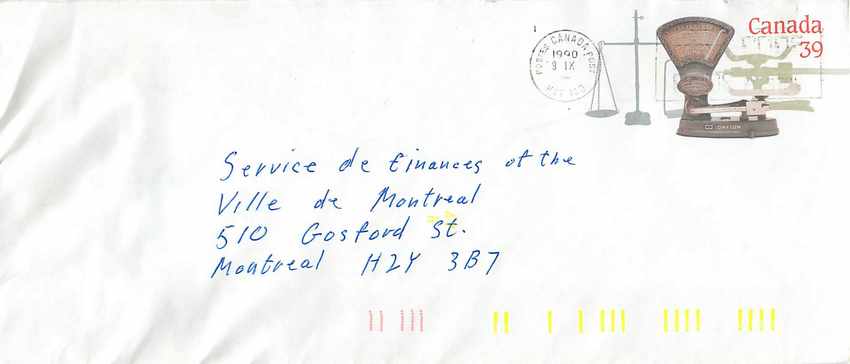 Canada
39
POSTES CANADA POST
1990
9 IX
DAYTON
Service de finances of the
Ville de Montreal
510 Gosford St.
Montreal H2Y 3B7